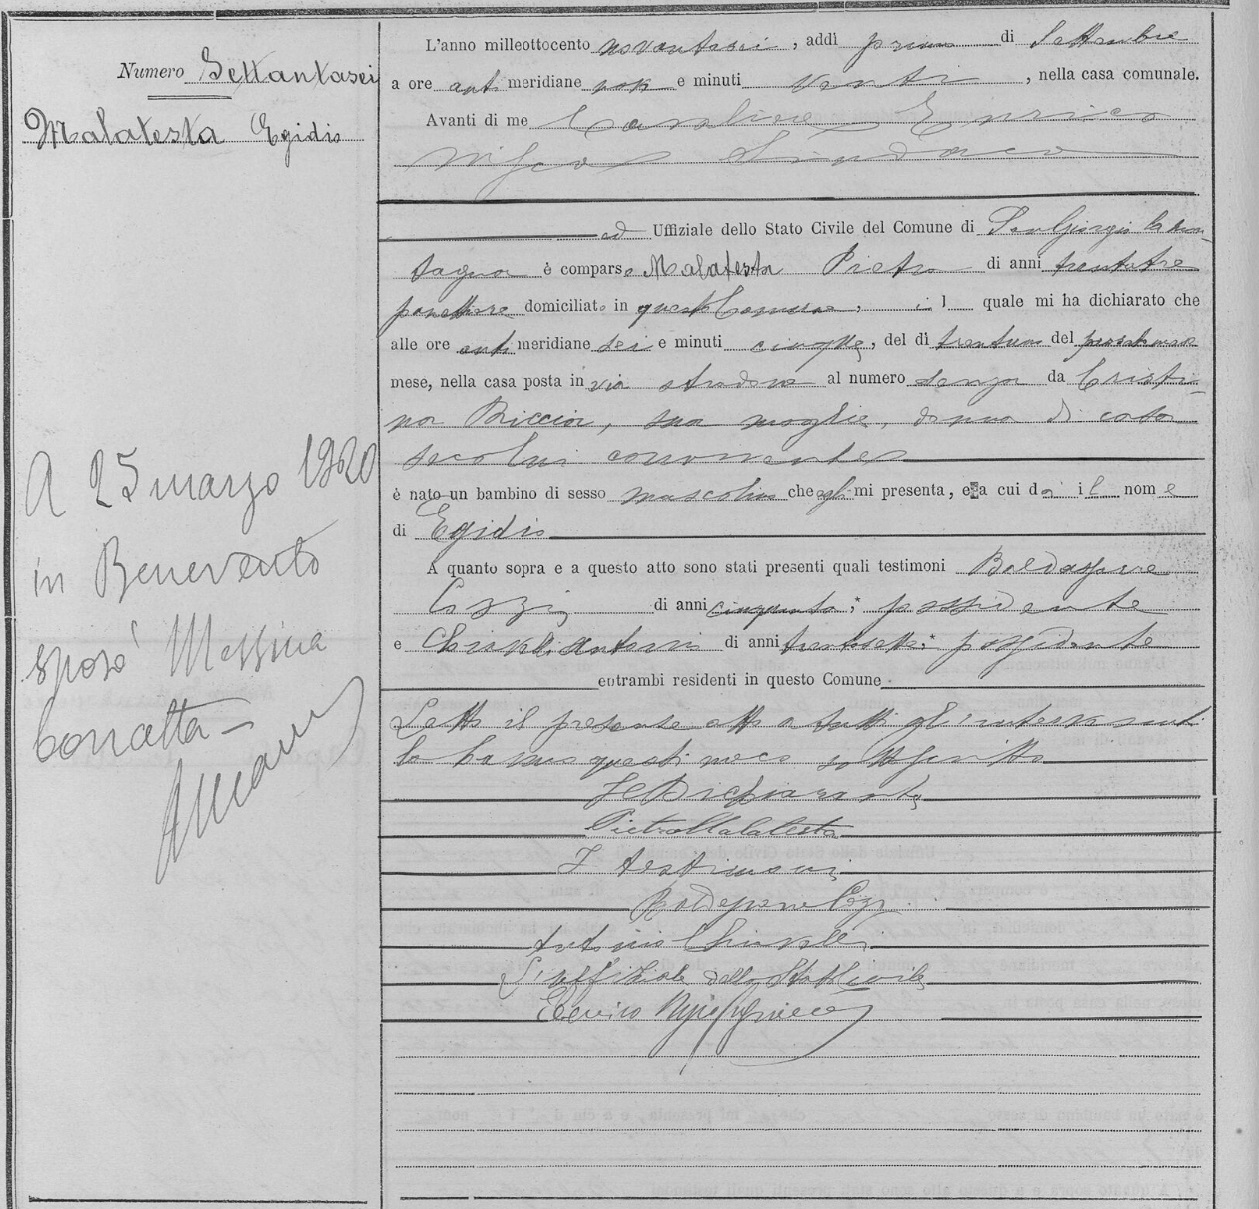 Numero Settantasei
Malatesta Egidio
A 25 marzo 1920
in Benevento
sposò Messina
L'anno milleottocento novantasei, addì primo di Settembre
a ore anti meridiane e minuti venti, nella casa comunale.
Avanti di me Cavaliere Enrico
Sindaco
ed Uffiziale dello Stato Civile del Comune di San Giorgio la Mon-
tagna è comparso Malatesta Pietro di anni trentatre
panettiere domiciliato in questo Comune, il quale mi ha dichiarato che
alle ore anti meridiane sei e minuti cinque, del dì trentuno del
mese, nella casa posta in via al numero senza da Cristi-
na Riccio, sua moglie, donna di casa
seco lui convivente
è nato un bambino di sesso mascolino che egli mi presenta, e a cui dà il nome
di Egidio
A quanto sopra e a questo atto sono stati presenti quali testimoni Baldassarre
Cozzi di anni cinquanta, possidente
e Antonio di anni trentasette, possidente
entrambi residenti in questo Comune
Letto il presente atto a tutti gl'intervenuti
lo hanno questi meco sottoscritto
Il Dichiarante
Pietro Malatesta
I testimoni
Baldassarre Cozzi
Antonio
L'uffiziale dello Stato Civile
Enrico